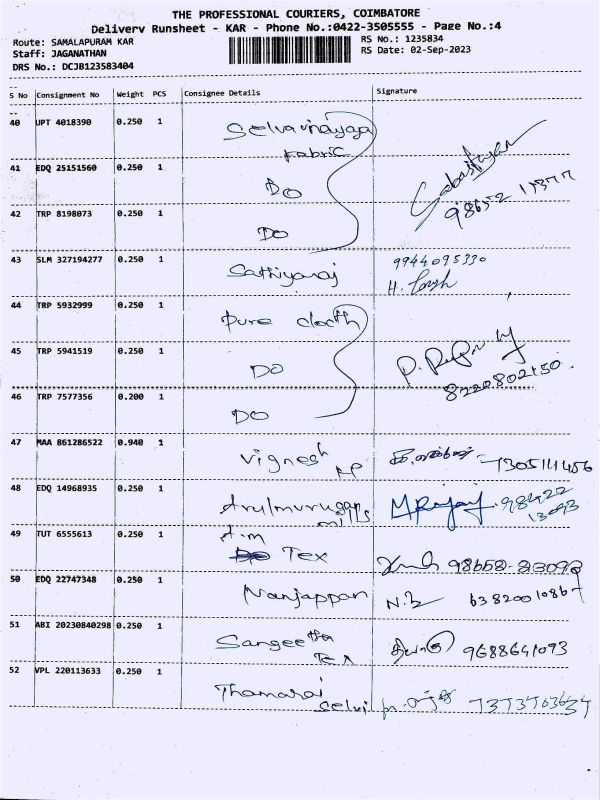 THE PROFESSIONAL COURIERS, COIMBATORE
Delivery Runsheet - KAR - Phone No.:0422-3505555 - Page No.:4
Route: SAMALAPURAM KAR
RS No.: 1235834
Staff: JAGANATHAN
RS Date: 02-Sep-2023
DRS No.: DCJB123583404
S No Consignment No Weight PCS Consignee Details Signature
40 UPT 4018390 0.250 1 Selvavinayaga
Fabric
41 EDQ 25151560 0.250 1 DO
42 TRP 8198073 0.250 1 DO
43 SLM 327194277 0.250 1 Sathiyaraj 9944095330
H.
44 TRP 5932999 0.250 1 Pure cloth
45 TRP 5941519 0.250 1 DO
8220802150
46 TRP 7577356 0.200 1 DO
47 MAA 861286522 0.940 1 Vignesh 7305111456
48 EDQ 14968935 0.250 1 Arulmurugan
mills
49 TUT 6555613 0.250 1 A.m
Tex
50 EDQ 22747348 0.250 1 Nanjappan
51 ABI 20230840298 0.250 1 Sangeetha
Tex 9688641093
52 VPL 220113633 0.250 1 Thamarai
Selvi